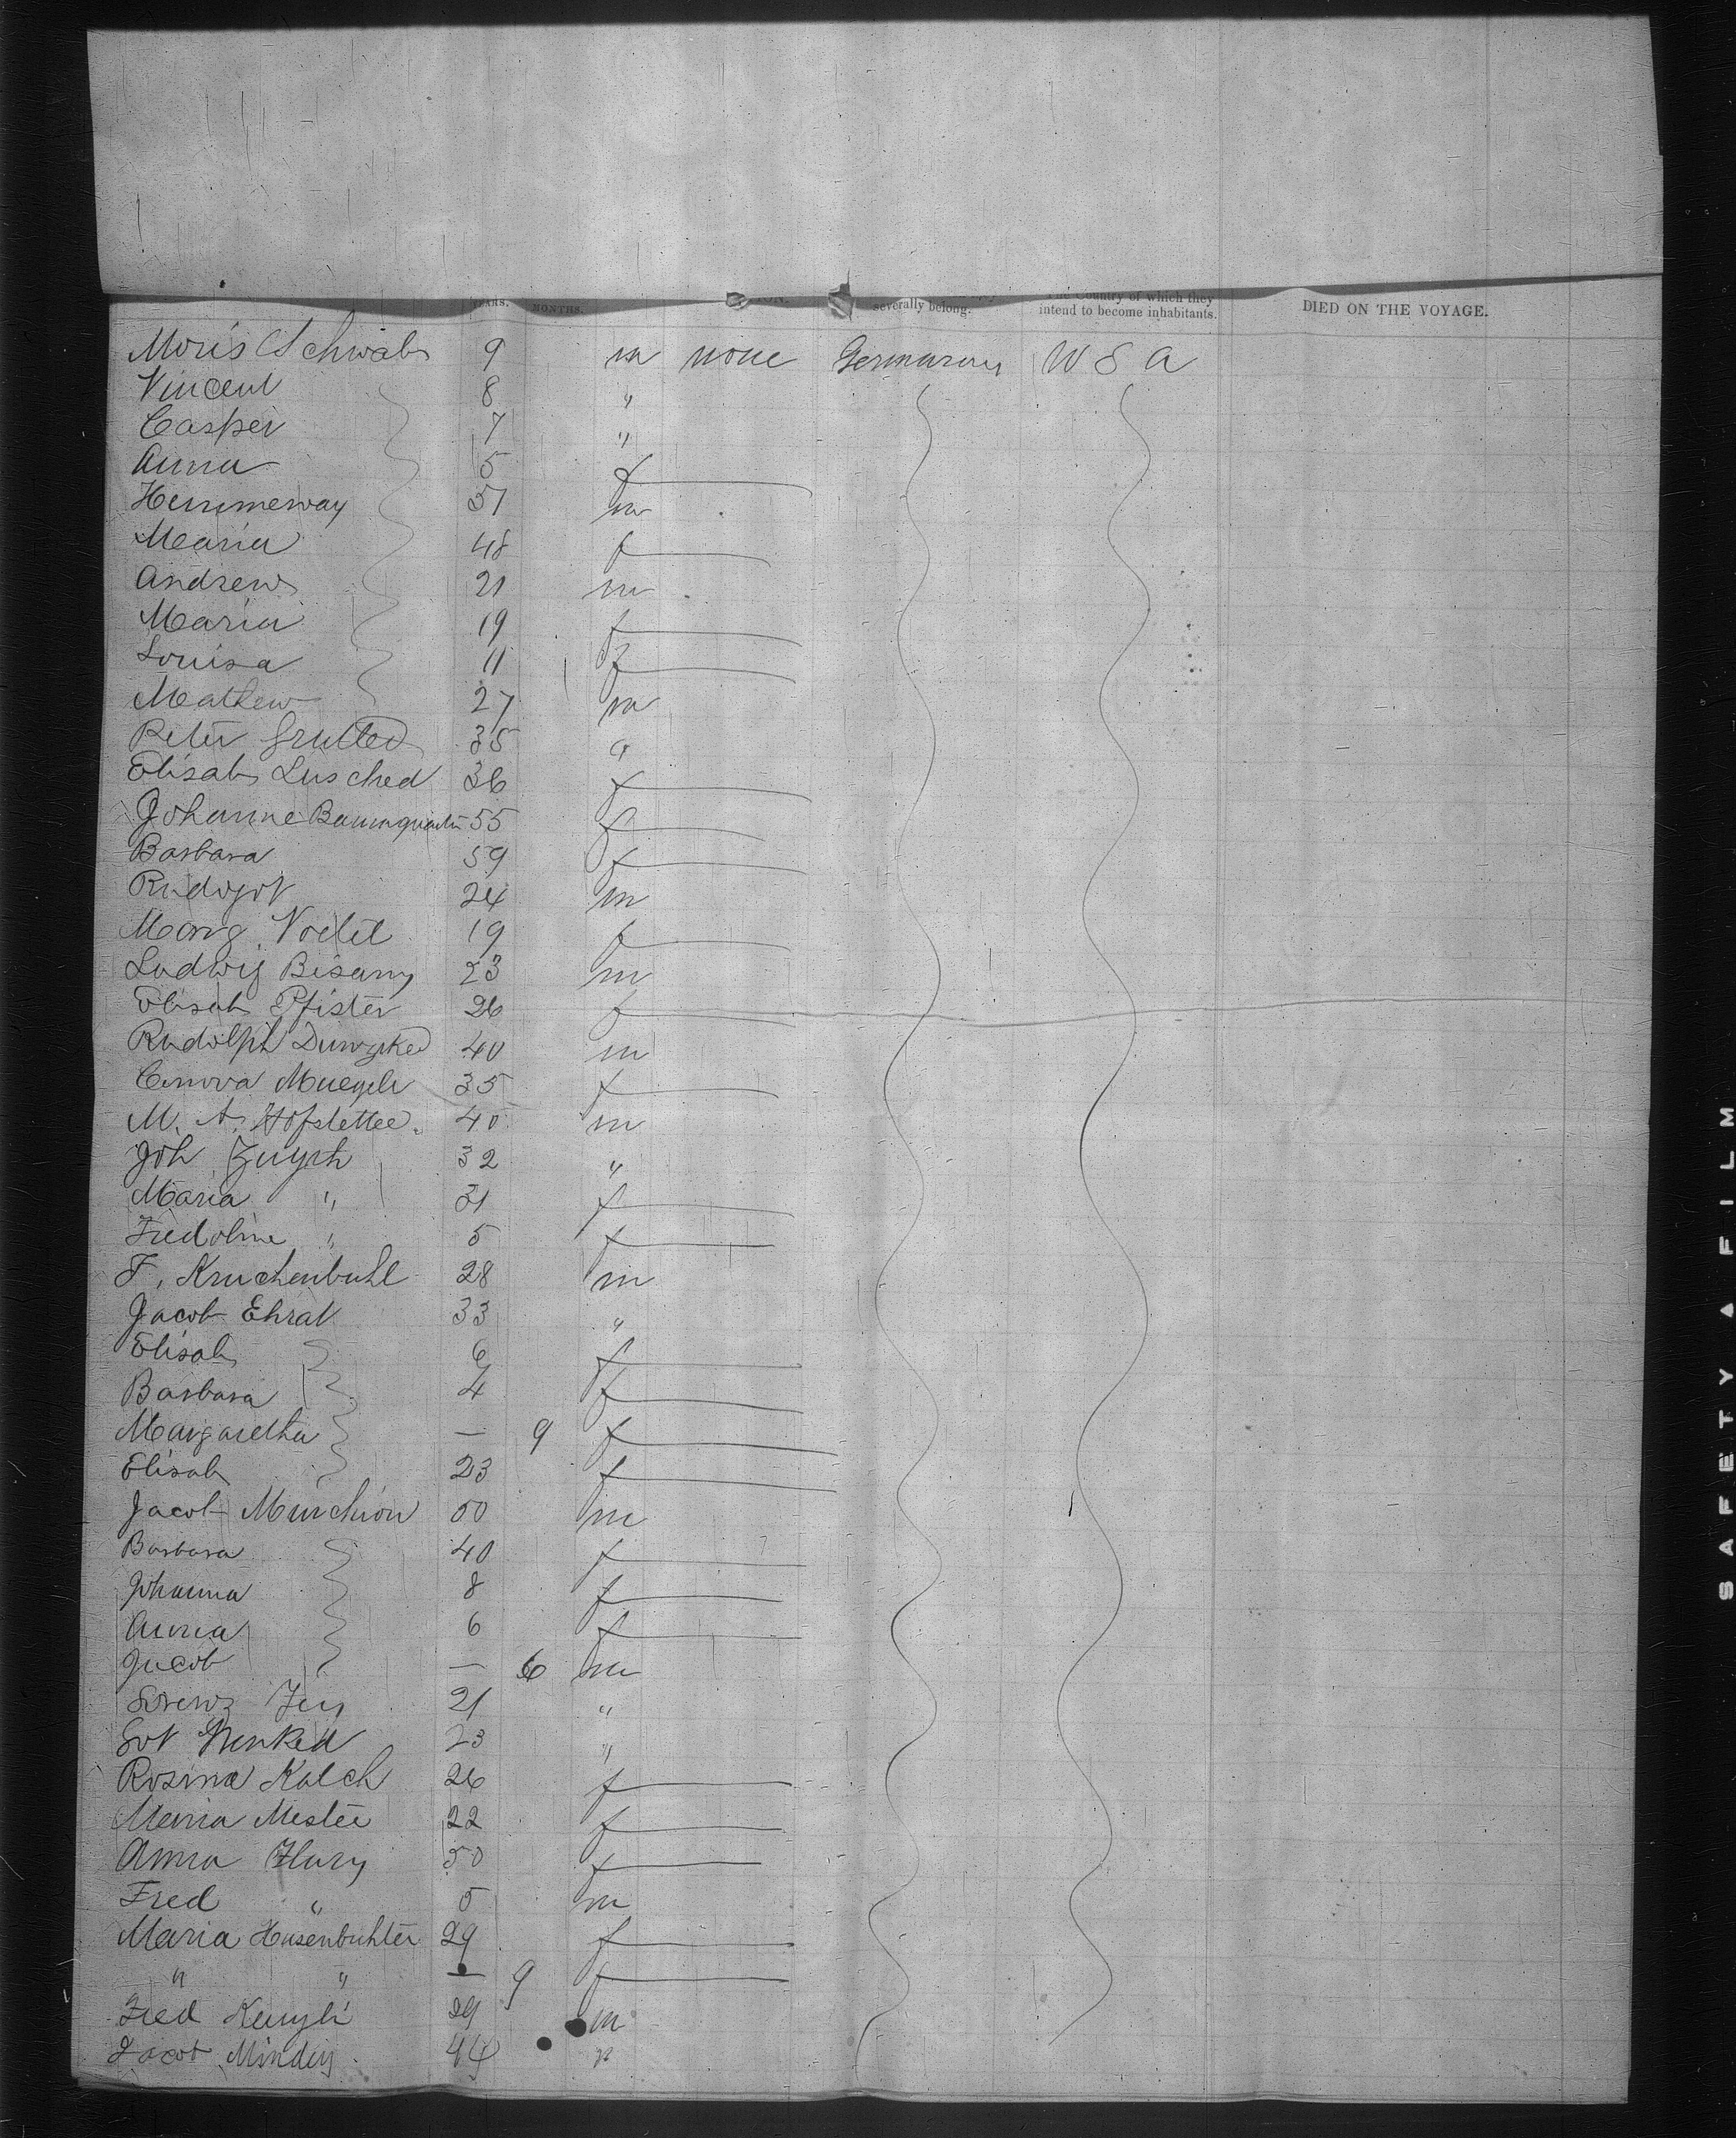 YEARS. MONTHS. severally belong. The Country of which they intend to become inhabitants. DIED ON THE VOYAGE.
Moris Schwab 9 m none Germany U S A
Vincent 8 "
Casper 7 "
Anna 5 f
51 m
Maria 48 f
Andrew 21 m
Maria 19 f
Louisa 11 f
Mathew 27 m
Peter 35
Elisab 36 f
Johanne Baumgarten 55 f
Barbara 59 f
24 m
Marg 19 f
Ludwig Bisany 23 m
Elisab Pfister 26 f
Rudolph 40 m
35 f
M. A. Hofstetter 40 m
Joh 32 "
Maria " 31 f
Fredoline " 5 f
F. Kruchenbuhl 28 m
Jacob Ehrat 33 "
Elisab 6 f
Barbara 4 f
Margaretha — 9 f
Elisab 23 f
Jacob Murchion 50 m
Barbara 40 f
Johanna 8 f
Anna 6 f
Jacob — 6 m
Lorenz 21 "
Got 23 "
Rosina Kalch 26 f
Maria Mester 22 f
Anna Flury 50 f
Fred " 5 m
Maria Husenbuhler 29 f
" " — 9 f
Fred 29 m
Jacob 44 "
SAFETY ▲ FILM